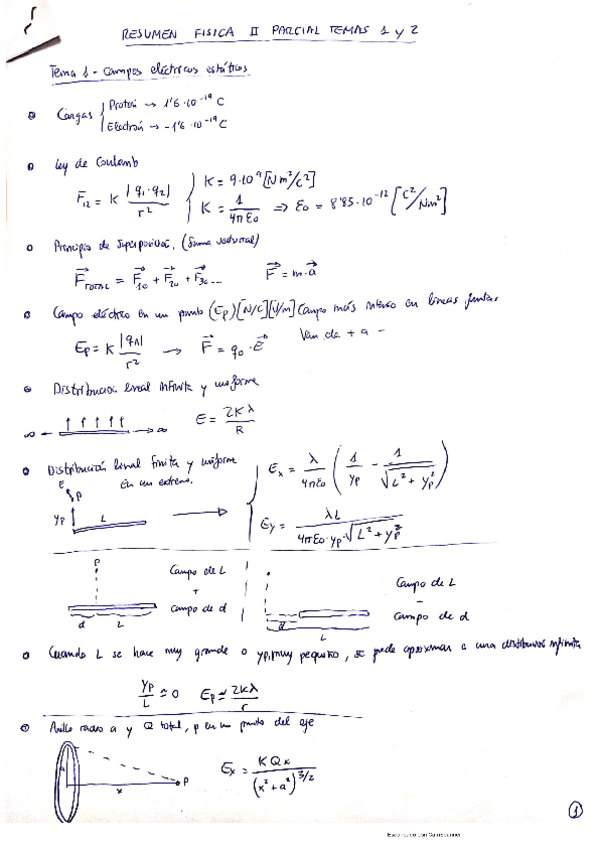 RESUMEN FISICA II PARCIAL TEMAS 1 y 2
Tema 1 - Campos eléctricos estáticos
Cargas { Protón → 1'6 · 10⁻¹⁹ C
Electrón → -1'6 · 10⁻¹⁹ C
Ley de Coulomb
F₁₂ = K |q₁·q₂| / r²
K = 9·10⁹ [Nm²/C²]
K = 1 / 4πε₀ ⇒ ε₀ = 8'85·10⁻¹² [C²/Nm²]
Principio de superposición, (Suma vectorial)
F⃗TOTAL = F⃗₁₀ + F⃗₂₀ + F⃗₃₀ ... F⃗ = m·a⃗
Campo eléctrico en un punto (Ep) [N/C] [V/m] Campo más intenso en líneas juntas
Van de + a -
Ep = K |q₁| / r² → F⃗ = q₀ · E⃗
Distribución lineal infinita y uniforme
∞ ← → ∞ E = 2Kλ / R
Distribución lineal finita y uniforme
en un extremo.
E P
yp L →
Ex = λ / 4πε₀ ( 1 / yp - 1 / √(L² + yp²) )
Ey = λL / 4πε₀·yp·√(L² + yp²)
P
d L
Campo de L
+
Campo de d
d
L
Campo de L
-
Campo de d
Cuando L se hace muy grande o yp muy pequeño, se puede aproximar a una distribución infinita
yp / L ≃ 0 Ep ≃ 2Kλ / r
Anillo radio a y Q total, p en un punto del eje
a x P
Ex = K Q x / (x² + a²)^3/2
1
Escaneado con CamScanner